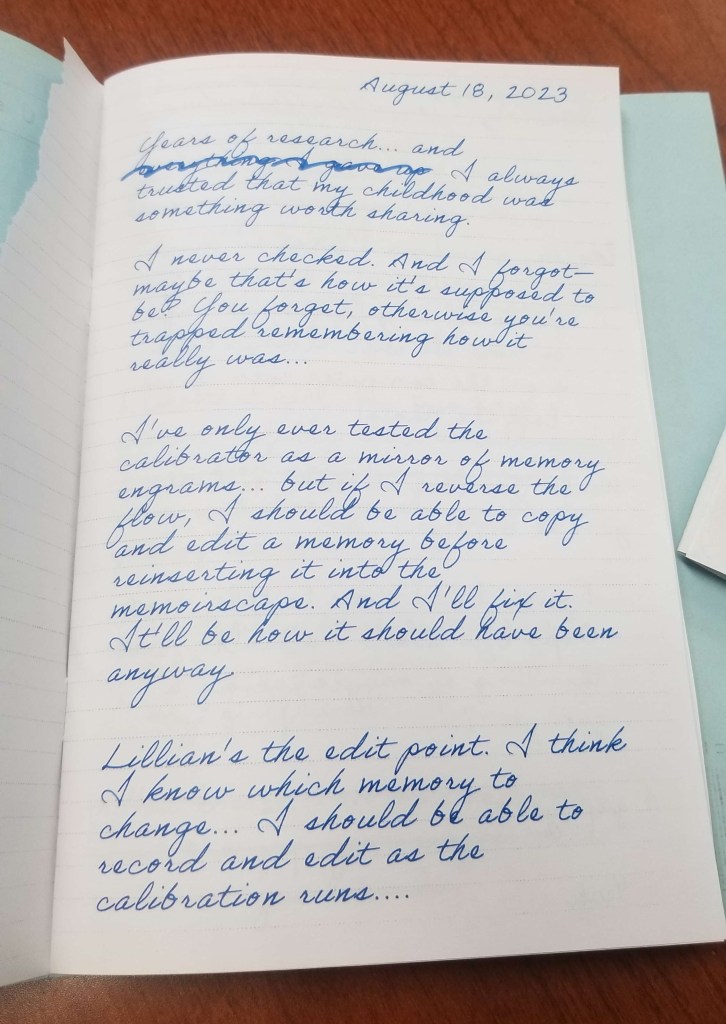 August 18, 2023
Years of research... and
everything I gave up I always
trusted that my childhood was
something worth sharing.
I never checked. And I forgot—
maybe that's how it's supposed to
be? You forget, otherwise you're
trapped remembering how it
really was...
I've only ever tested the
calibrator as a mirror of memory
engrams... but if I reverse the
flow, I should be able to copy
and edit a memory before
reinserting it into the
memoirscape. And I'll fix it.
It'll be how it should have been
anyway
Lillian's the edit point. I think
I know which memory to
change... I should be able to
record and edit as the
calibration runs....